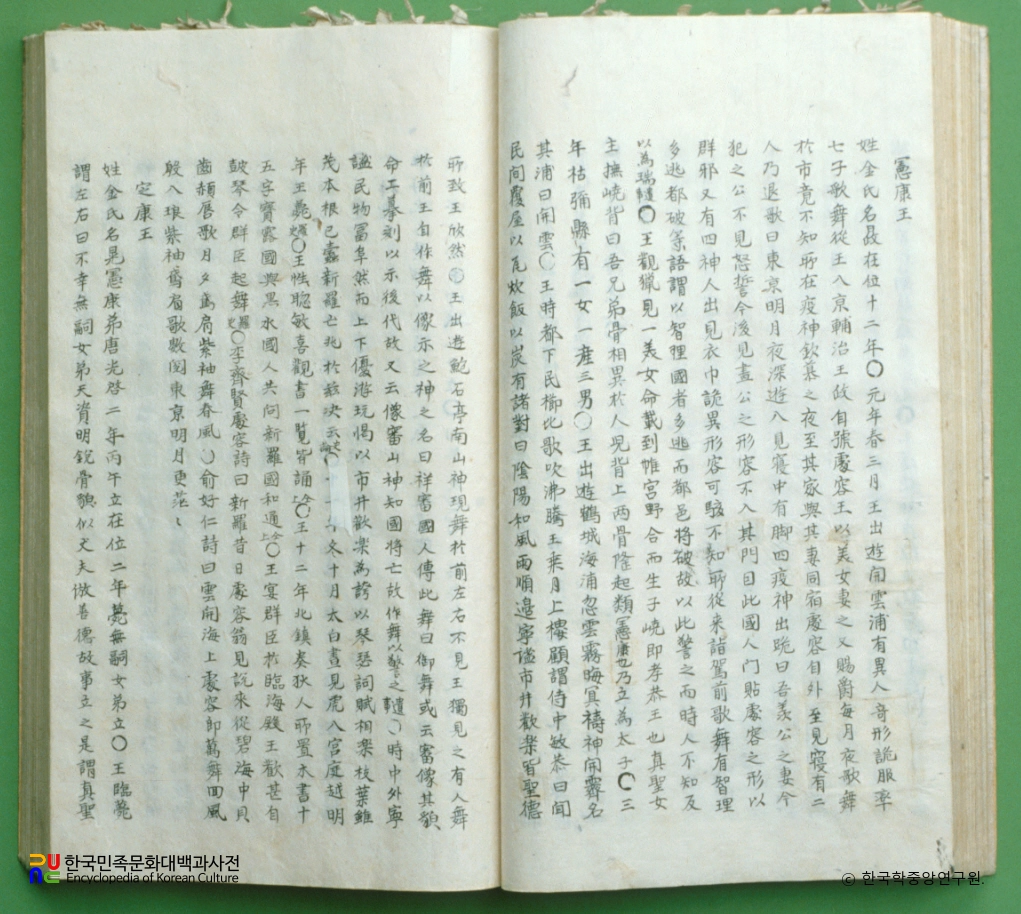 憲康王
姓金氏名晸在位十二年〇元年春三月王出遊開雲浦有異人奇形詭服率
七子歌舞從王入京輔治王政自號處容王以美女妻之又賜爵每月夜歌舞
於市竟不知所在疫神欽慕之夜至其家與其妻同宿處容自外至見寢有二
人乃退歌曰東京明月夜深遊入見寢中有脚四疫神出跪曰吾羡公之妻今
犯之公不見怒誓今後見畫公之形容不入其門目此國人門貼處容之形以
群邪又有四神人出見衣巾詭異形容可駭不知所從来詣駕前歌舞有智理
多逃都破等語謂以智理國者多逃而都邑将破故以此警之而時人不知及
以為瑞 〇王觀獵見一美女命載到帷宮野合而生子嶢即孝恭王也真聖女
主撫嶢背曰吾兄弟骨相異於人見背上兩骨隆起類憲康也乃立為太子〇三
年枯彌縣有一女一産三男〇王出遊鶴城海浦忽雲霧晦冥禱神開霽名
其浦曰開雲〇王時都下民櫛比歌吹沸騰王乗月上樓顧謂侍中敏恭曰聞
民間覆屋以瓦炊飯以炭有諸對曰陰陽和風雨順邉寧謐市井歡楽皆聖德
所致王欣然〇王出遊鮑石亭南山神現舞於前左右不見王獨見之有人舞
於前王自作舞以像示之神之名曰祥審國人傳此舞曰御舞祥審或云審像其貌
命工摹刻以示後代故又云儯審山神知國将亡故作舞以警之 〇時中外寧
謐民物冨阜然而上下優游玩愒以市井歡楽為誇以琴瑟詞賦相楽枝葉雖
茂本根已蠹新羅亡兆於玆决云 〇 冬十月太白晝見虎入宮庭越明
年王薨 〇王性聡敏喜觀書一覧皆誦 〇王十二年北鎮奏狄人所置木書十
五字寶露國與黒水國人共向新羅國和通 〇王宴群臣於臨海殿王歡甚自
鼓琴令群臣起舞羅史〇李齊賢處容詩曰新羅昔日處容翁見說来從碧海中貝
齒頳唇歌月夕鳶肩紫袖舞春風〇俞好仁詩曰雲開海上處容郎萬舞回風
殷八琅紫袖舊眉歌數闋東京明月更茫〻
定康王
姓金氏名晃憲康弟唐光啓二年丙午立在位二年薨無嗣女弟立〇王臨薨
謂左右曰不幸無嗣女弟天資明銳骨貌似丈夫倣善德故事立之是謂真聖
한국민족문화대백과사전
Encyclopedia of Korean Culture
© 한국학중앙연구원.